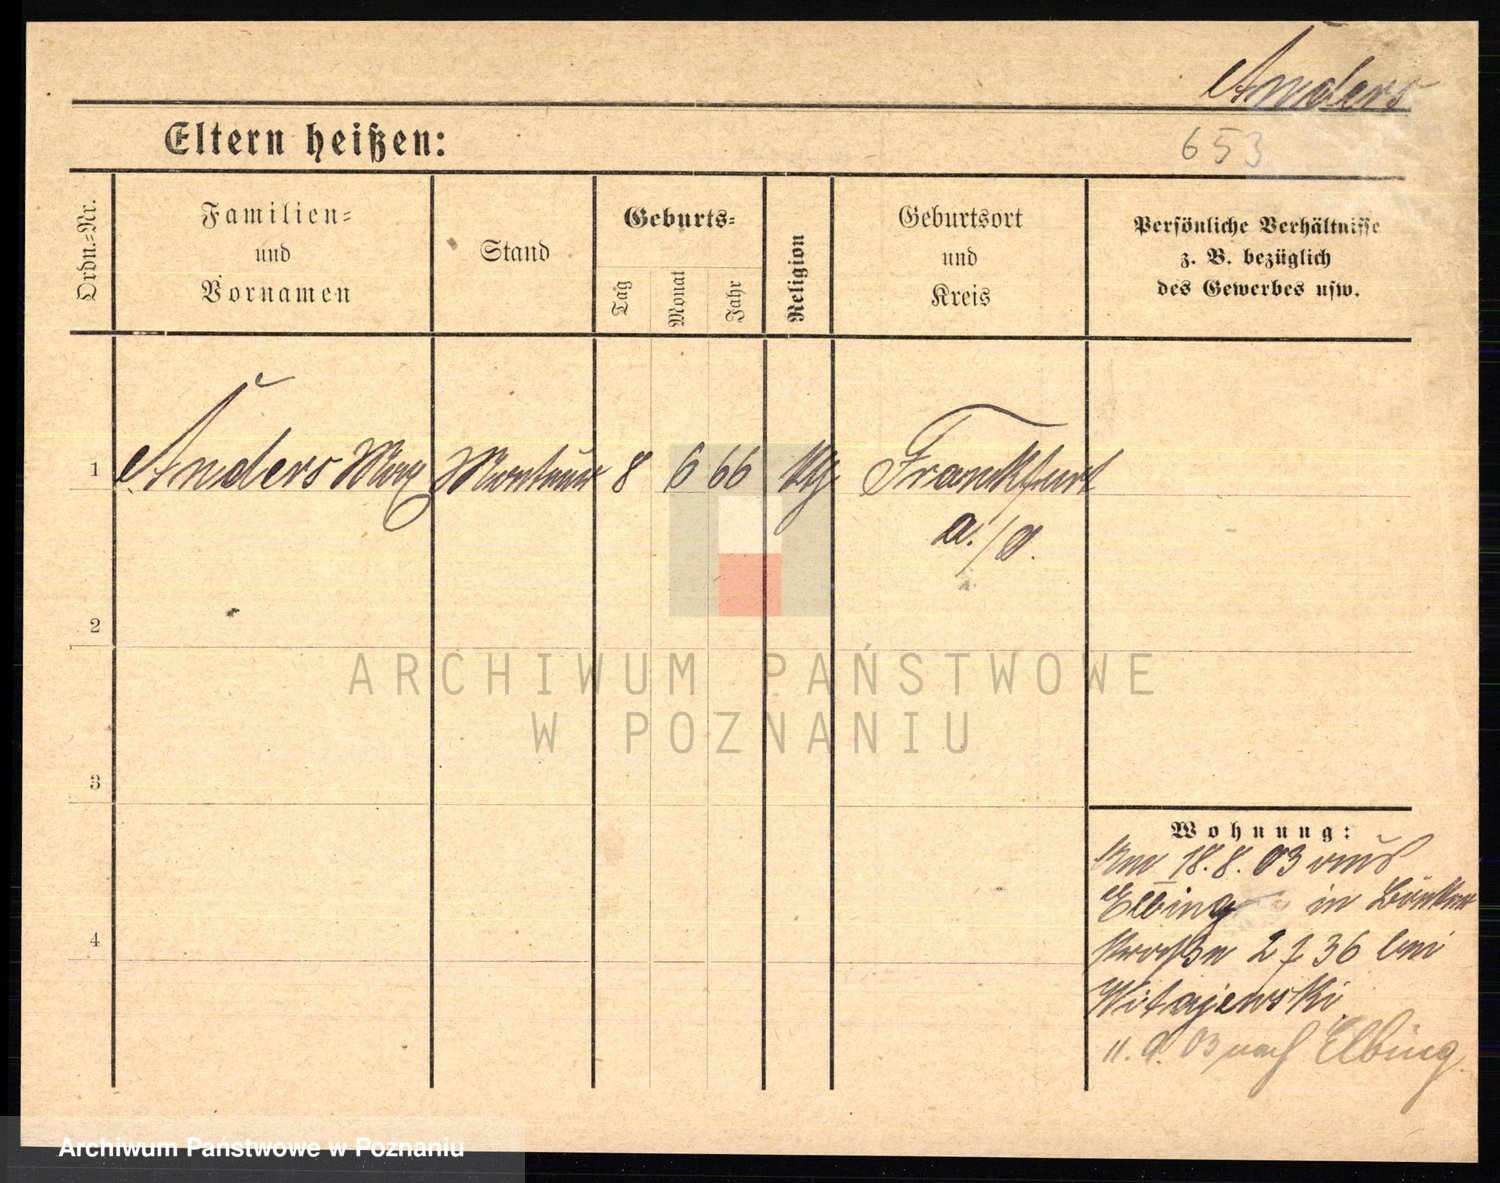 Anders
653
Eltern heißen:
Ordn.-Nr.
Familien-
und
Vornamen
Stand
Geburts-
Tag
Monat
Jahr
Religion
Geburtsort
und
Kreis
Persönliche Verhältnisse
z. B. bezüglich
des Gewerbes usw.
1 Anders Max Monteur 8 6 66 Frankfurt
a./O.
2
3
4
Wohnung:
Am 18.8.03 aus
Elbing in
straße 27 36 bei
Witajewski
11.9.03 nach Elbing
ARCHIWUM PAŃSTWOWE
W POZNANIU
Archiwum Państwowe w Poznaniu